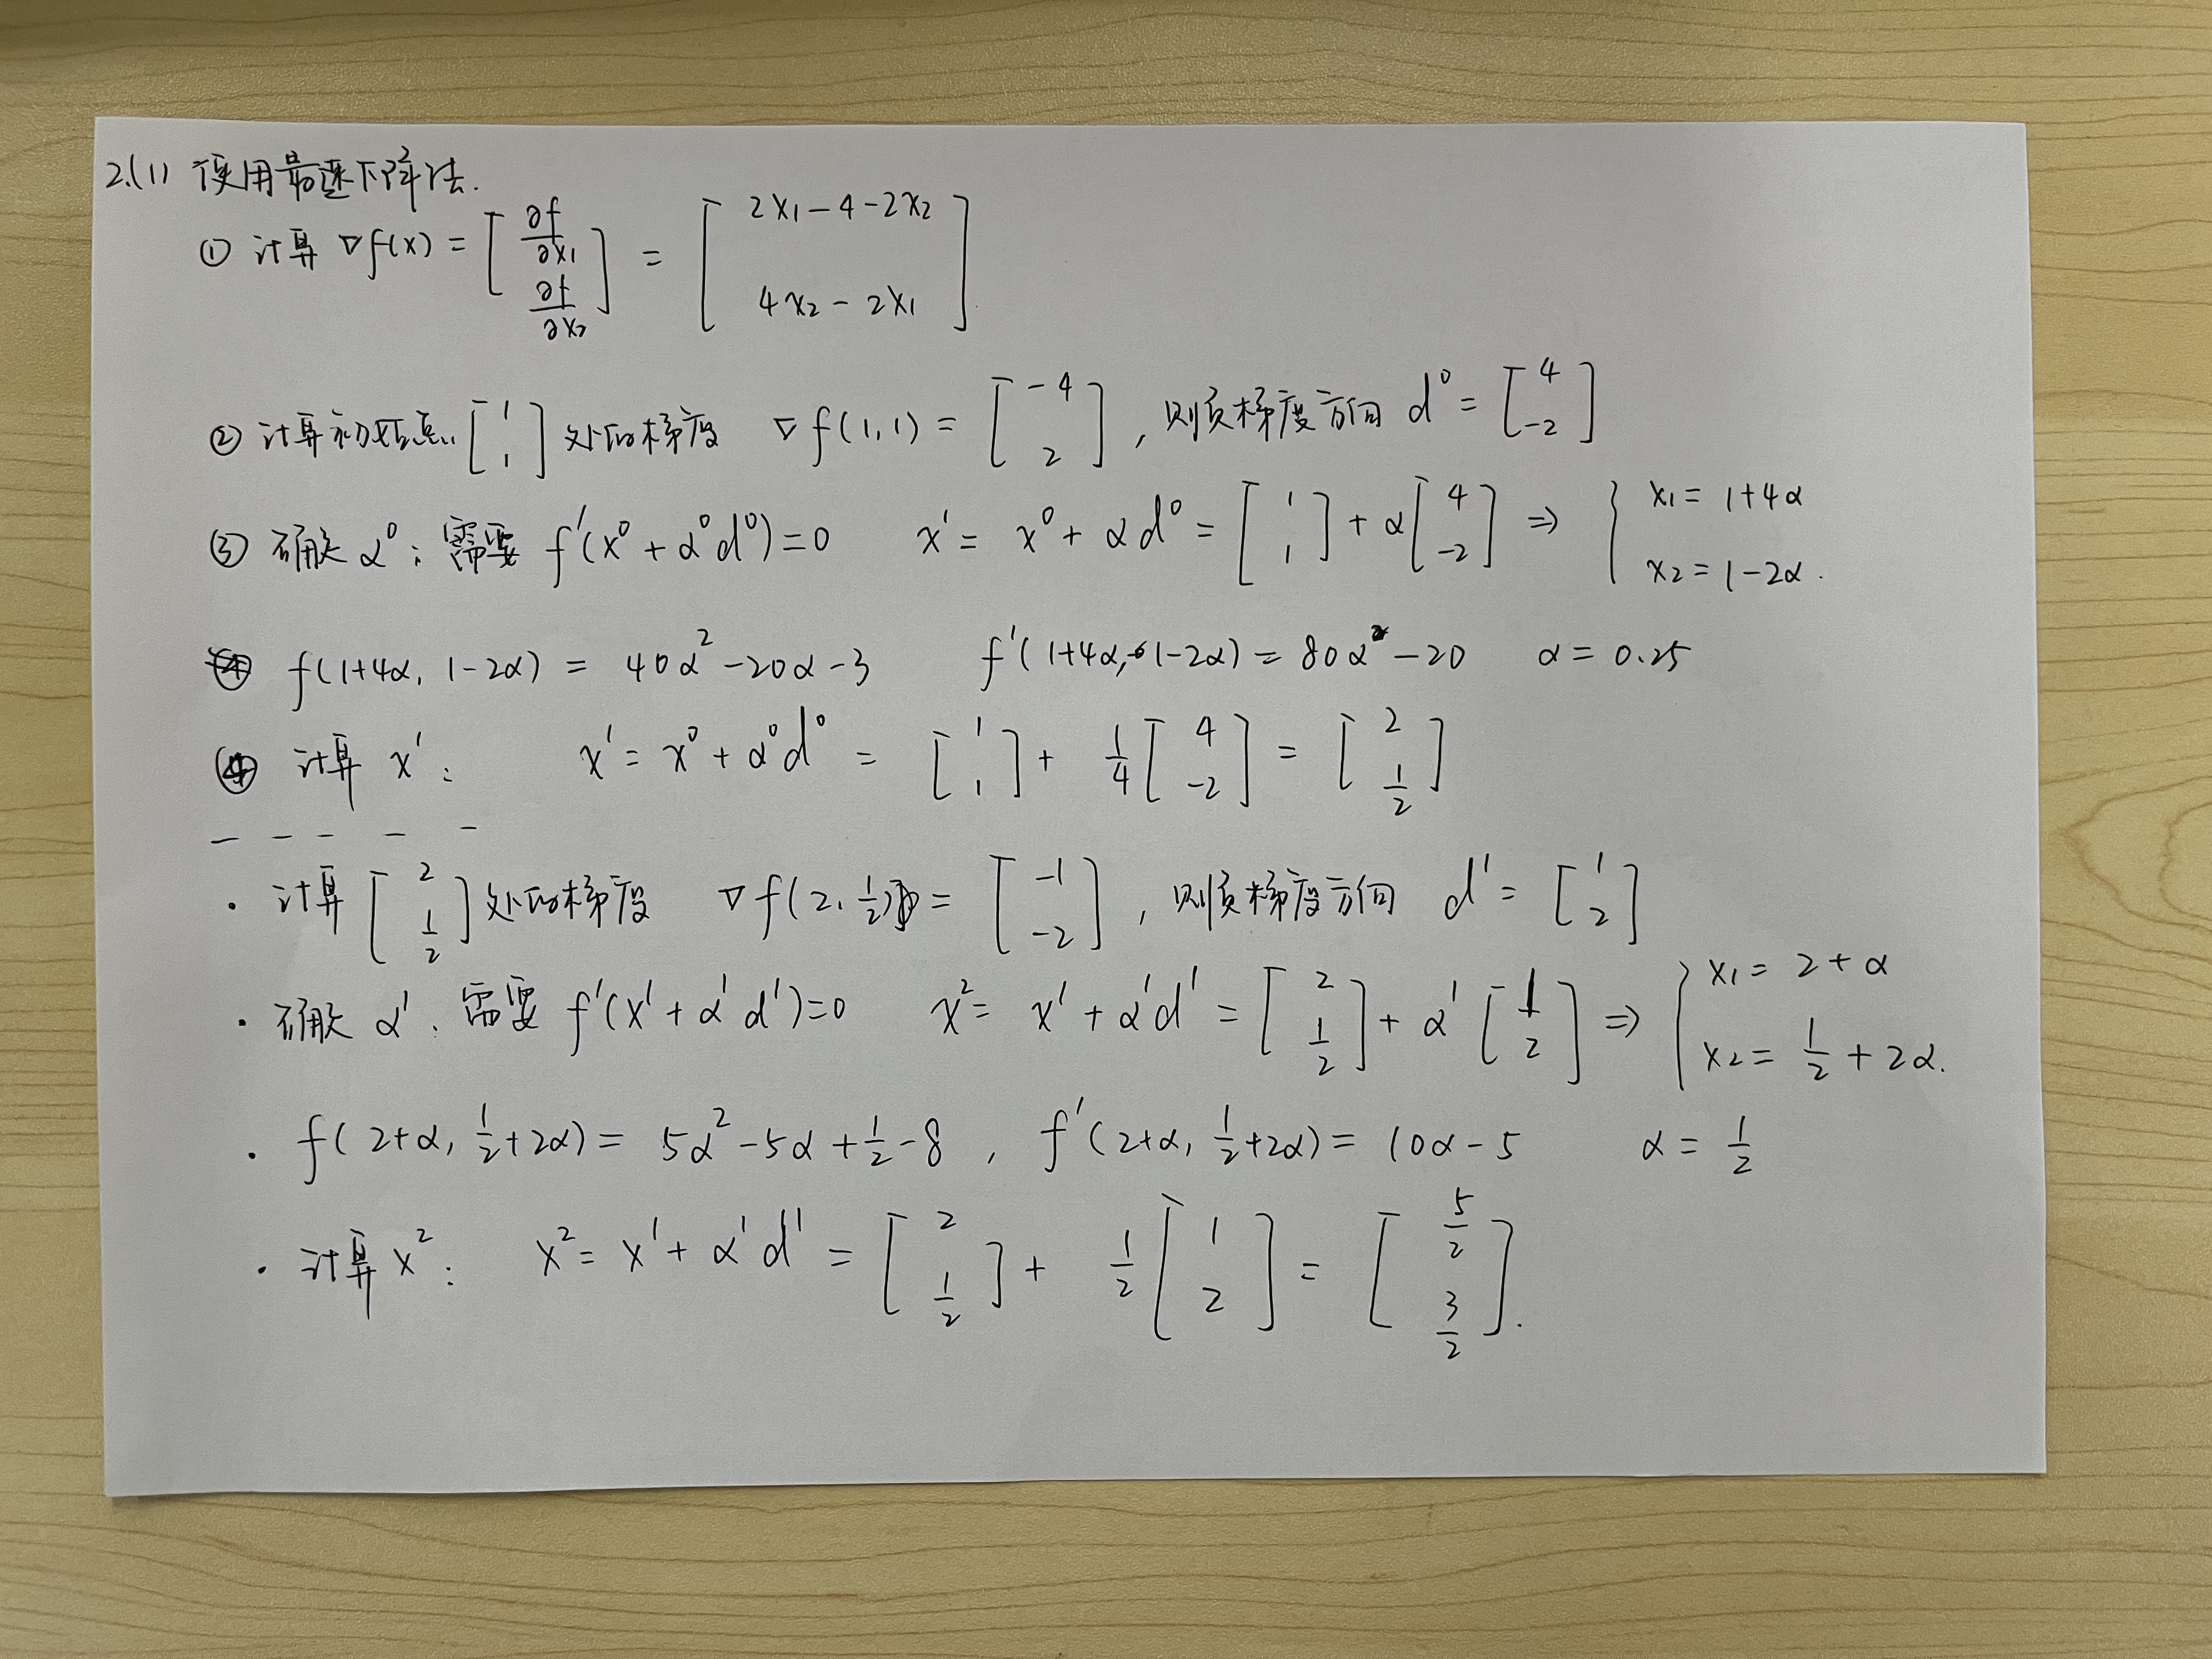 2.(1) 使用最速下降法.
① 计算 ∇f(x) = [∂f/∂x₁ ∂f/∂x₂] = [2x₁-4-2x₂ 4x₂-2x₁]
② 计算初始点 [1 1] 处的梯度 ∇f(1,1) = [-4 2], 则负梯度方向 d⁰ = [4 -2]
③ 确定 α⁰: 需要 f'(x⁰+α⁰d⁰)=0 x¹ = x⁰+αd⁰ = [1 1] + α[4 -2] ⇒ { x₁ = 1+4α x₂ = 1-2α.
f(1+4α, 1-2α) = 40α²-20α-3 f'(1+4α, 1-2α) = 80α-20 α = 0.25
④ 计算 x¹: x¹ = x⁰+α⁰d⁰ = [1 1] + 1/4 [4 -2] = [2 1/2]
- - - - -
· 计算 [2 1/2] 处的梯度 ∇f(2, 1/2) = [-1 -2], 则负梯度方向 d¹ = [1 2]
· 确定 α¹: 需要 f'(x¹+α¹d¹)=0 x² = x¹+α¹d¹ = [2 1/2] + α¹[1 2] ⇒ { x₁ = 2+α x₂ = 1/2+2α.
· f(2+α, 1/2+2α) = 5α²-5α+1/2-8, f'(2+α, 1/2+2α) = 10α-5 α = 1/2
· 计算 x²: x² = x¹+α¹d¹ = [2 1/2] + 1/2 [1 2] = [5/2 3/2].